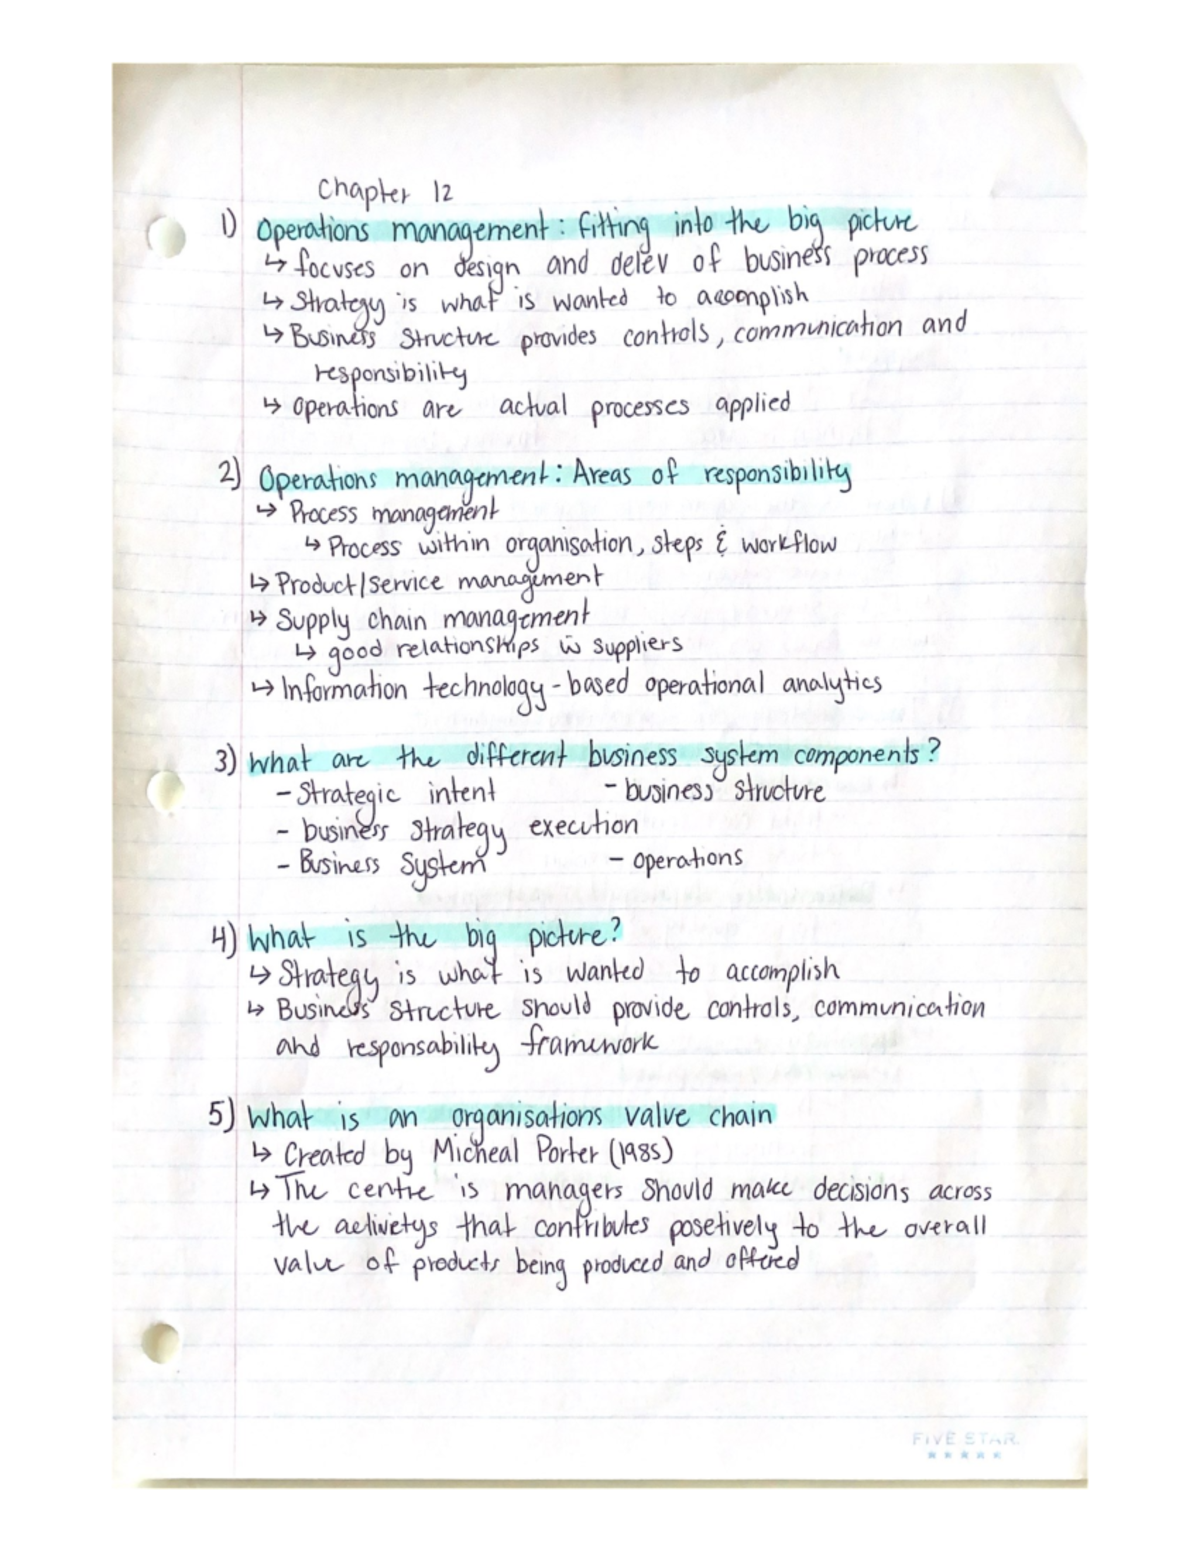 Chapter 12
1) Operations management: fitting into the big picture
↳ focuses on design and delev of business process
↳ Strategy is what is wanted to accomplish
↳ Business Structure provides controls, communication and
responsibility
↳ Operations are actual processes applied
2) Operations management: Areas of responsibility
↳ Process management
↳ Process within organisation, steps & workflow
↳ Product/service management
↳ Supply chain management
↳ good relationships w̄ suppliers
↳ Information technology-based operational analytics
3) What are the different business system components?
- Strategic intent - business structure
- business strategy execution
- Business System - operations
4) What is the big picture?
↳ Strategy is what is wanted to accomplish
↳ Business Structure should provide controls, communication
and responsability framework
5) What is an organisations value chain
↳ Created by Micheal Porter (1985)
↳ The centre is managers should make decisions across
the activetys that contributes posetively to the overall
value of products being produced and offered
FIVE STAR
★★★★★